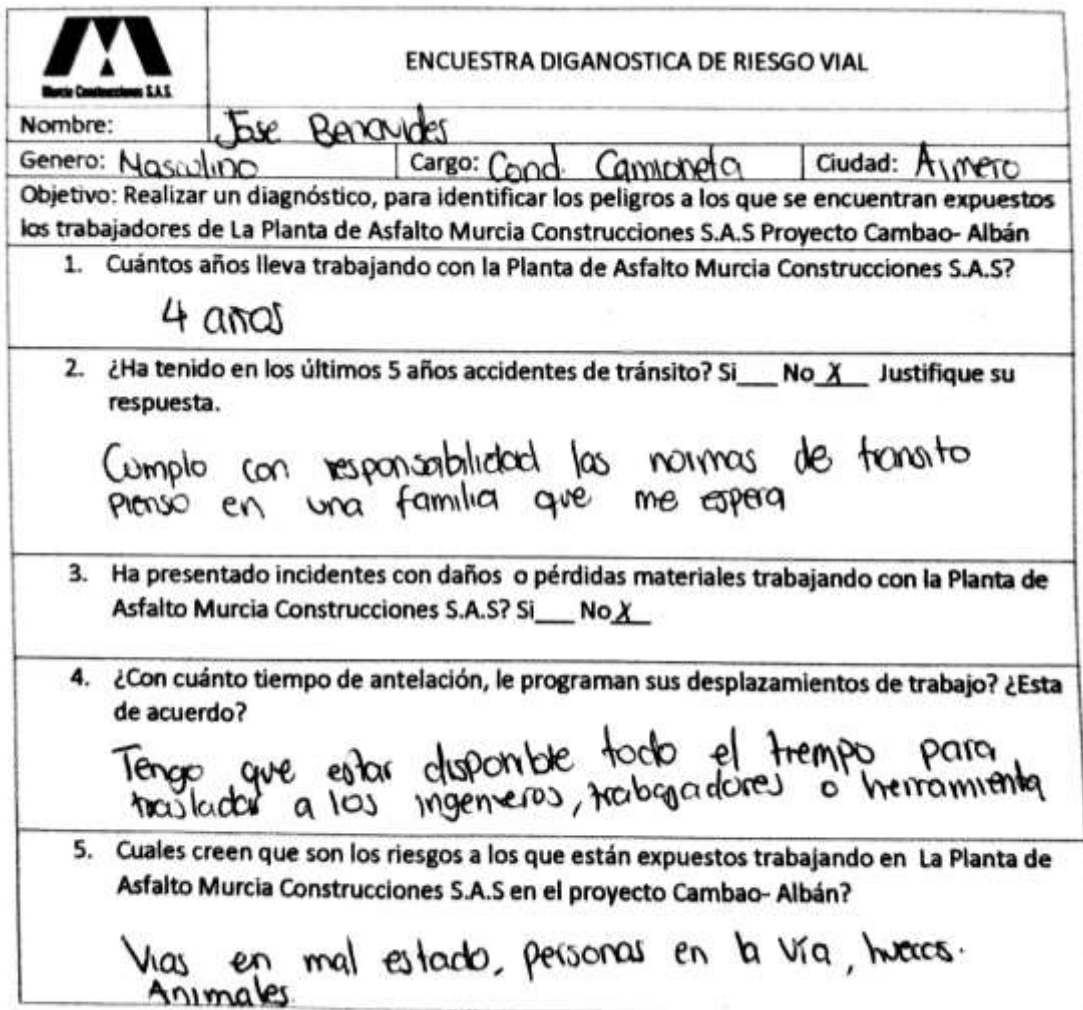 Murcia Construcciones S.A.S.
ENCUESTRA DIGANOSTICA DE RIESGO VIAL
Nombre: Jose Benavides
Genero: Masculino Cargo: Cond. Camioneta Ciudad: Aimero
Objetivo: Realizar un diagnóstico, para identificar los peligros a los que se encuentran expuestos
los trabajadores de La Planta de Asfalto Murcia Construcciones S.A.S Proyecto Cambao- Albán
1. Cuántos años lleva trabajando con la Planta de Asfalto Murcia Construcciones S.A.S?
4 años
2. ¿Ha tenido en los últimos 5 años accidentes de tránsito? Si___ No_X__ Justifique su
respuesta.
Cumplo con responsabilidad las normas de transito
pienso en una familia que me espera
3. Ha presentado incidentes con daños o pérdidas materiales trabajando con la Planta de
Asfalto Murcia Construcciones S.A.S? Si___ No_X_
4. ¿Con cuánto tiempo de antelación, le programan sus desplazamientos de trabajo? ¿Esta
de acuerdo?
Tengo que estar disponible todo el tiempo para
trasladar a los ingenieros, trabajadores o herramienta
5. Cuales creen que son los riesgos a los que están expuestos trabajando en La Planta de
Asfalto Murcia Construcciones S.A.S en el proyecto Cambao- Albán?
Vias en mal estado, personas en la vía, huecos.
Animales.